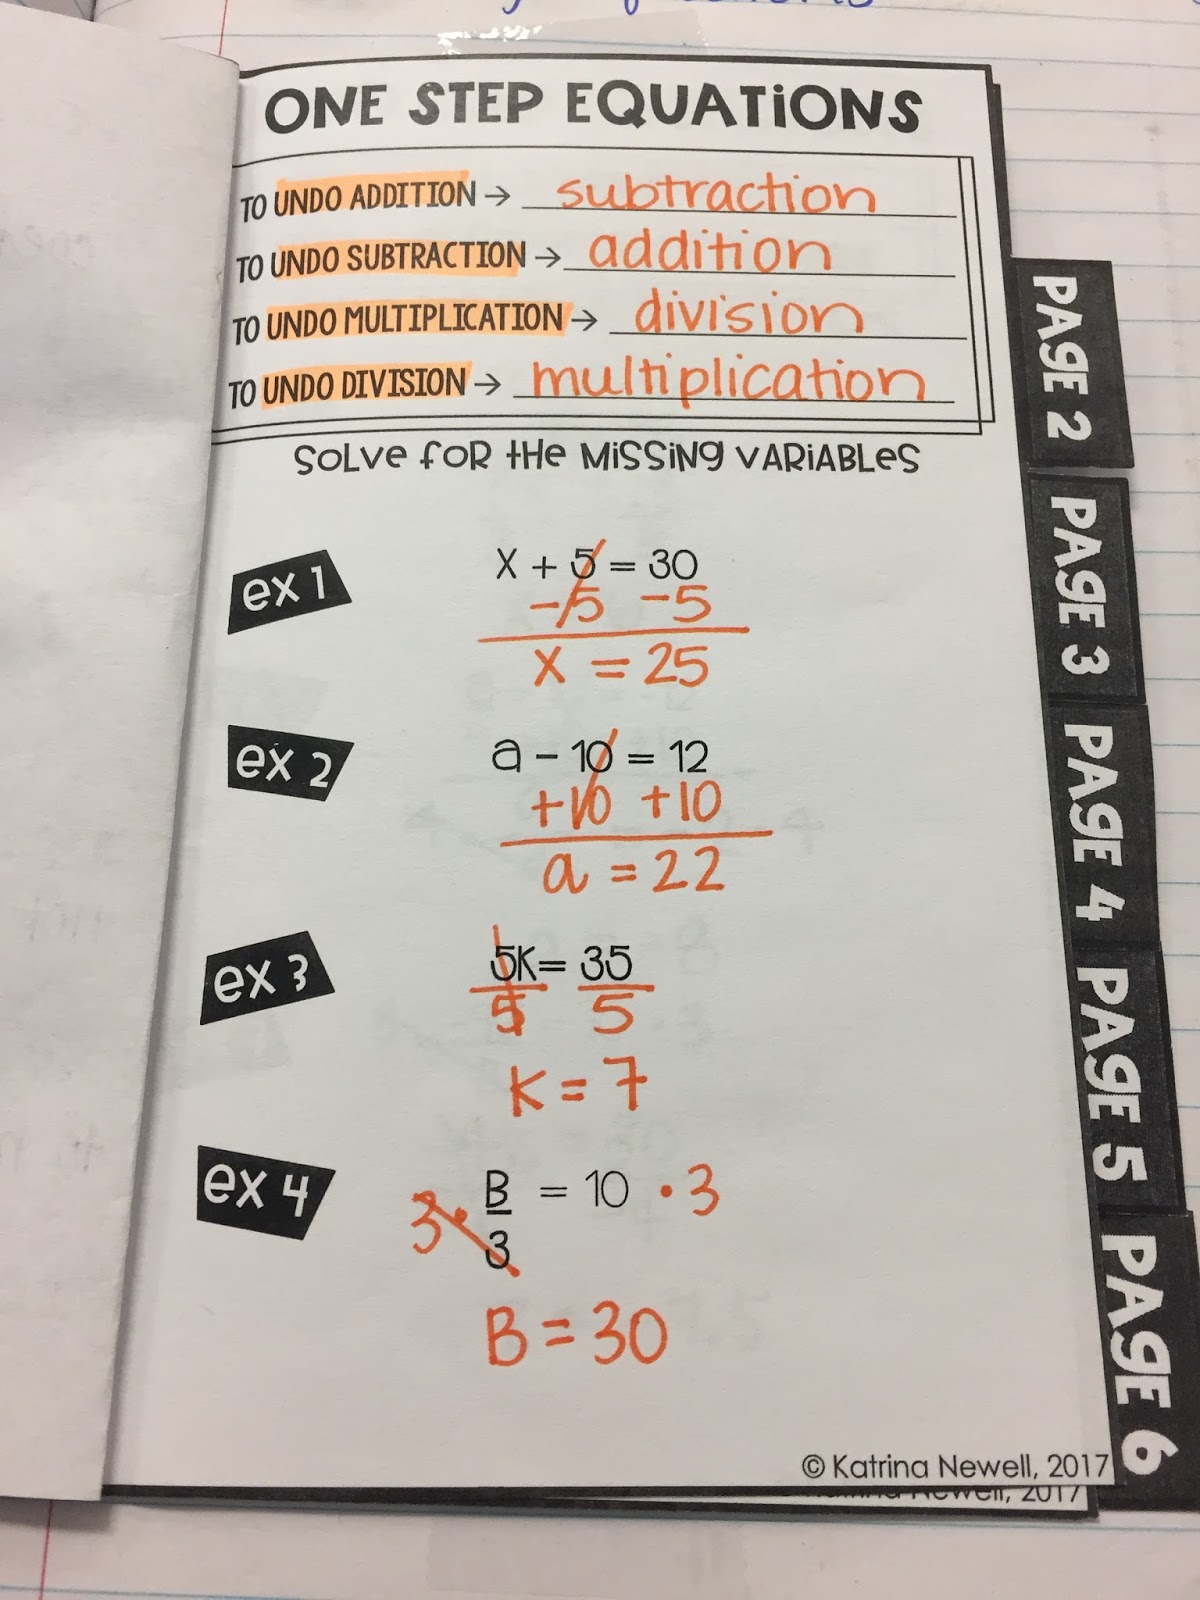 ONE STEP EQUATIONS
TO UNDO ADDITION → subtraction
TO UNDO SUBTRACTION → addition
TO UNDO MULTIPLICATION → division
TO UNDO DIVISION → multiplication
SOLVE FOR THE MISSING VARIABLES
ex 1
X + 5 = 30
-5 -5
x = 25
ex 2
a - 10 = 12
+10 +10
a = 22
ex 3
5K= 35
5 5
K = 7
ex 4
3 • B = 10 • 3
3
B = 30
© Katrina Newell, 2017
Katrina Newell, 2017
PAGE 2
PAGE 3
PAGE 4
PAGE 5
PAGE 6